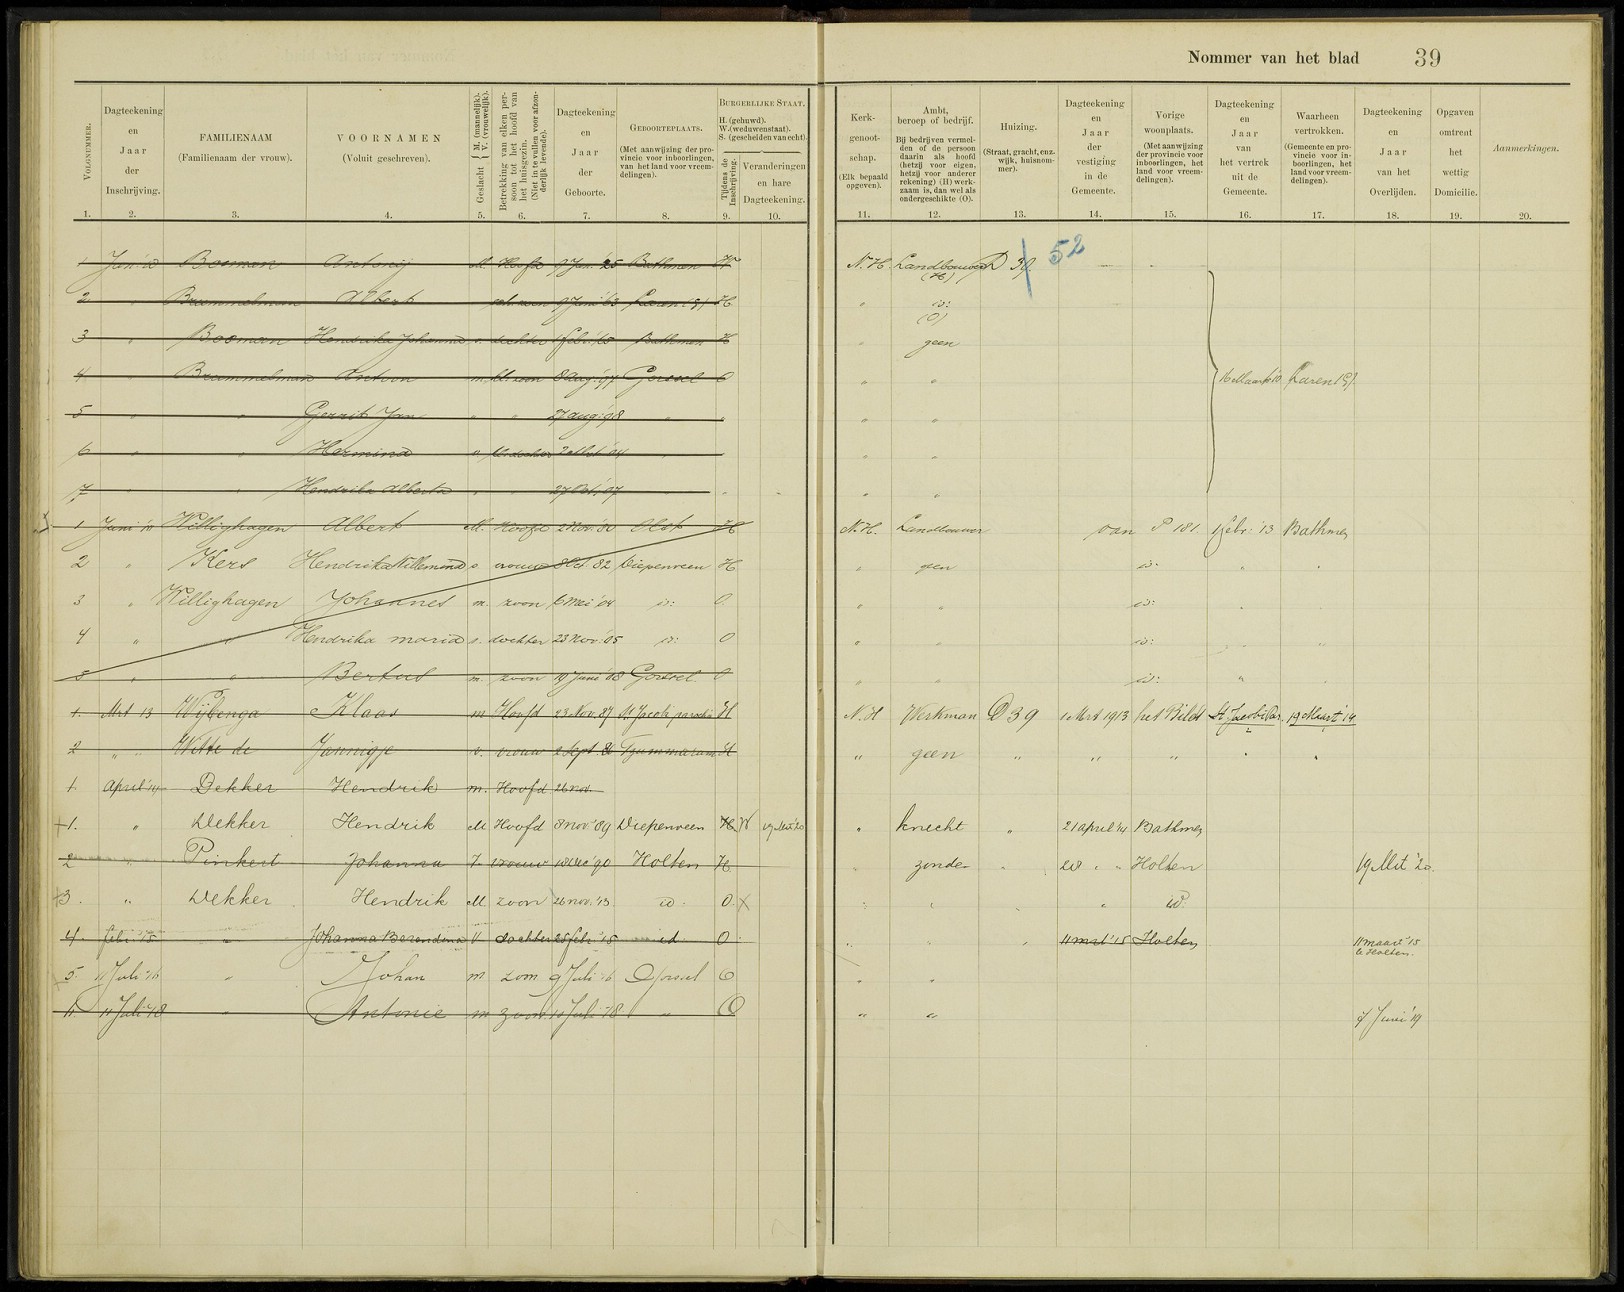 Nommer van het blad 39
VOLGNUMMER.
Dagteekening en Jaar der Inschrijving.
FAMILIENAAM (Familienaam der vrouw).
VOORNAMEN (Voluit geschreven).
Geslacht { M. (mannelijk). V. (vrouwelijk).
Betrekking van elken persoon tot het hoofd van het huisgezin. (Niet in te vullen voor afzonderlijk levende).
Dagteekening en Jaar der Geboorte.
GEBOORTEPLAATS. (Met aanwijzing der provincie voor inboorlingen, van het land voor vreemdelingen).
BURGERLIJKE STAAT. H. (gehuwd). W. (weduwenstaat). S. (gescheiden van echt).
Tijdens de Inschrijving.
Veranderingen en hare Dagteekening.
Kerkgenootschap. (Elk bepaald opgeven).
Ambt, beroep of bedrijf. Bij bedrijven vermelden of de persoon daarin als hoofd (hetzij voor eigen, hetzij voor anderer rekening) (H) werkzaam is, dan wel als ondergeschikte (O).
Huizing. (Straat, gracht, enz. wijk, huisnommer).
Dagteekening en Jaar der vestiging in de Gemeente.
Vorige woonplaats. (Met aanwijzing der provincie voor inboorlingen, het land voor vreemdelingen).
Dagteekening en Jaar van het vertrek uit de Gemeente.
Waarheen vertrokken. (Gemeente en provincie voor inboorlingen, het land voor vreemdelingen).
Dagteekening en Jaar van het Overlijden.
Opgaven omtrent het wettig Domicilie.
Aanmerkingen.
1. 2. 3. 4. 5. 6. 7. 8. 9. 10. 11. 12. 13. 14. 15. 16. 17. 18. 19. 20.
1 Jan. '10 Bosman Antonij M. Hoofd 9 Jan. '25 Bathmen W N.H. Landbouwer (H) D 39. 52
2 " Brummelman Albert 9 Juni '63 Laren (G) H " id: (O)
3 " Bosman Hendrika Johanna v. dochter Bathmen H " geen
4 " Brummelman Antoon m. kl. zoon 8 Aug. '97 Gorssel O " " 16 Maart '10 Laren (G).
5 " " Gerrit Jan " " 27 Aug. '98 " " " "
6 " " Hermina " " "
7 " " Hendrika Alberta " " 27 Oct. '07 " " "
1 Juni '10 Willighagen Albert M. Hoofd 2 Nov. '80 Olst H N.H. Landbouwer van P 181. 1 febr. '13 Bathmen
2 " Kers Hendrika Willemina v. vrouw 8 Oct. 82 Diepenveen H " geen id: "
3 " Willighagen Johannes m. zoon 6 Mei '04 id: O. " " id:
4 " " Hendrika Maria v. dochter 23 Nov. '05 id: O " " id:
5 " " Bertus m. zoon 19 Juni '08 Gorssel. O " " id: "
1. Mrt 13 Wijbenga Klaas m Hoofd 23 Nov. 87 St. Jacobi parochie H N.H Werkman D 39 1 Mrt 1913 het Bildt St. Jacobi Par. 19 Maart '14
2 " " Witte de Jannigje v. vrouw 2 Sept. 86 Tzummarum H " geen " " "
1. April '14 Dekker Hendrik m. Hoofd 26 nov.
+1. " Dekker Hendrik M Hoofd 8 nov '89 Diepenveen H. W 19 Mrt '20 " knecht " 21 april '14 Bathmen
2 " Pinkert Johanna V. vrouw '90 Holten H. zonder id " " Holten 19 Mrt '20
+3. " Dekker Hendrik M zoon 26 nov. '13. id. O. X " id.
4. febr. '15 " Johanna Berendina V dochter 25 febr. '15 id O 11 mrt '15 Holten 11 maart '15 te Holten.
5. 11 Juli '16 " Johan m. zoon 9 Juli '16 Gorssel O " "
11 Juli '18 " Antonie m zoon 10 Juli '18 " O " " 7 Juni '19